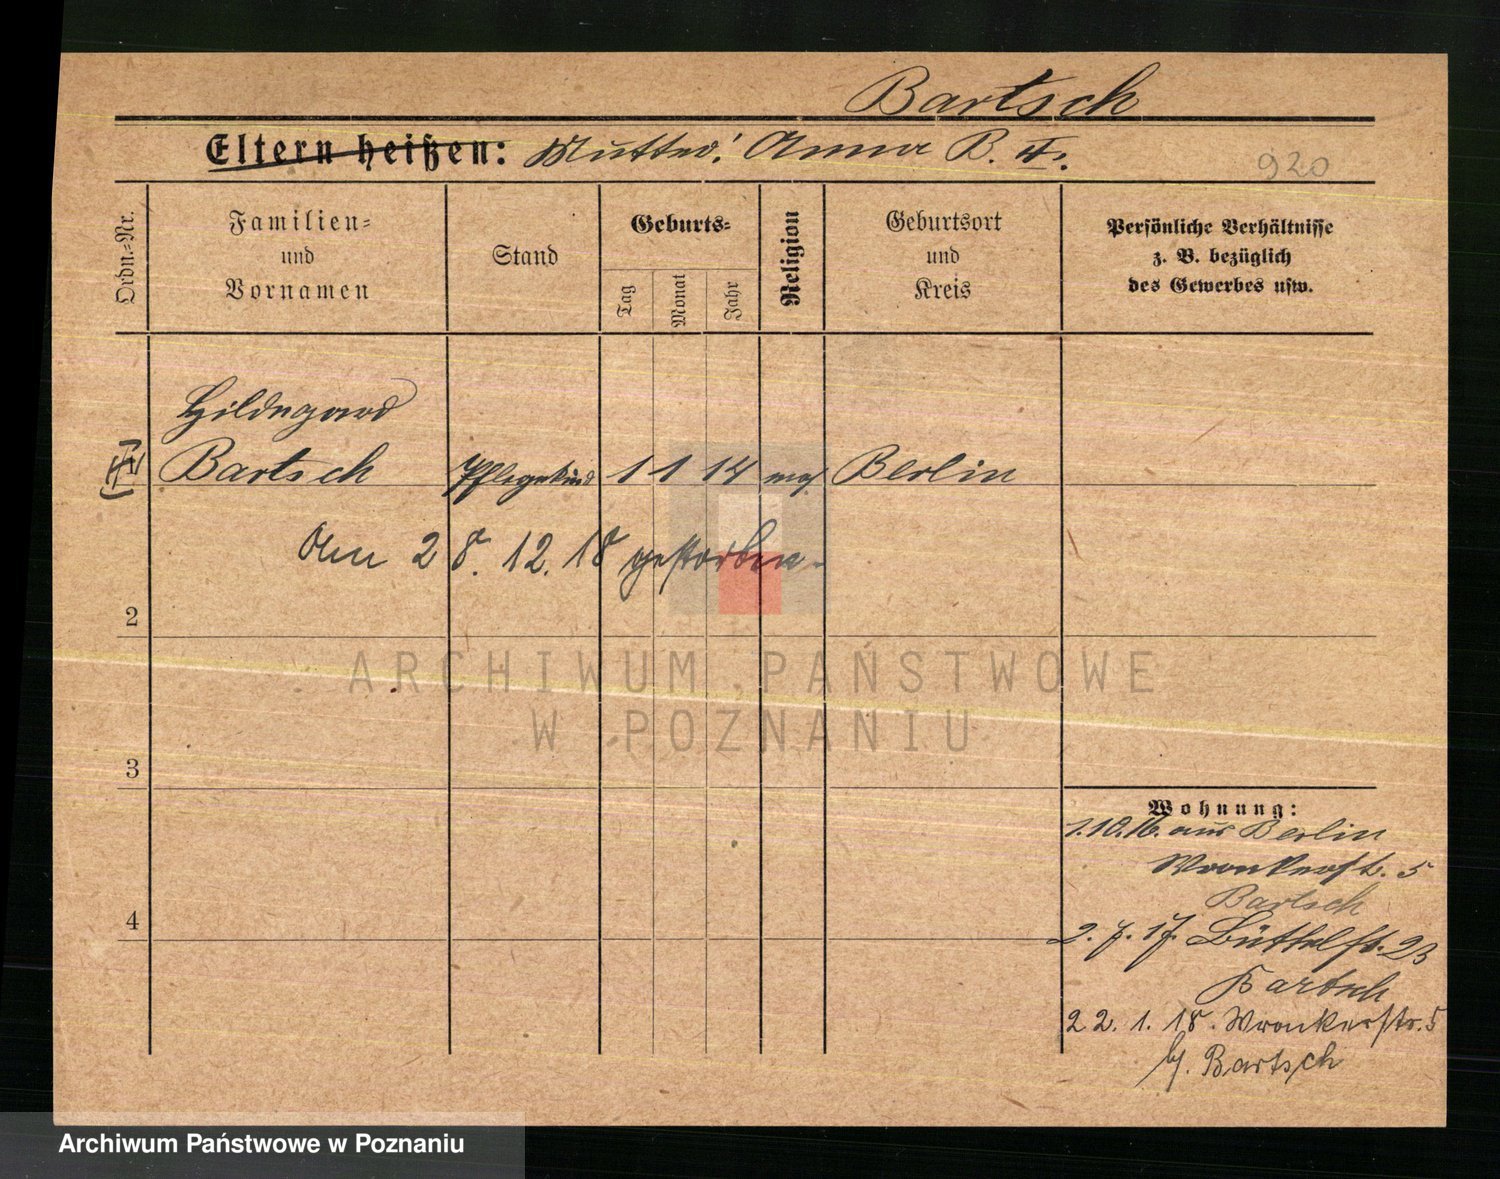 Bartsch
Eltern heißen: Mutter: Anna B. II.
920
Ordn.-Nr.
Familien-
und
Vornamen
Stand
Geburts-
Tag
Monat
Jahr
Religion
Geburtsort
und
Kreis
Persönliche Verhältnisse
z. B. bezüglich
des Gewerbes usw.
Hildegard
Bartsch Pflegekind 1 1 14 Berlin
Am 28. 12. 18 gestorben.
2
3
4
Wohnung:
1.10.16. aus Berlin
Wronkerstr. 5
Bartsch
2. 7. 17. Büttelstr. 23
Bartsch
22. 1. 18. Wronkerstr. 5
b/. Bartsch
ARCHIWUM PAŃSTWOWE
W POZNANIU
Archiwum Państwowe w Poznaniu